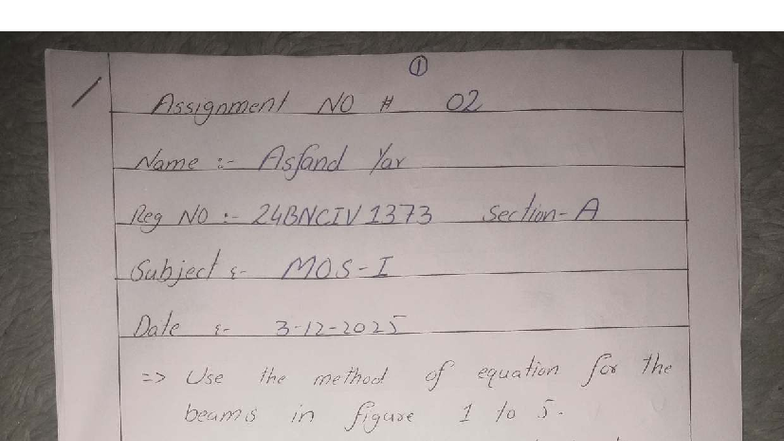 ①
Assignment NO # 02
Name :- Asfand Yar
Reg NO :- 24BNCIV1373 Section-A
Subject :- MOS-I
Date :- 3-12-2025
=> Use the method of equation for the
beams in figure 1 to 5.